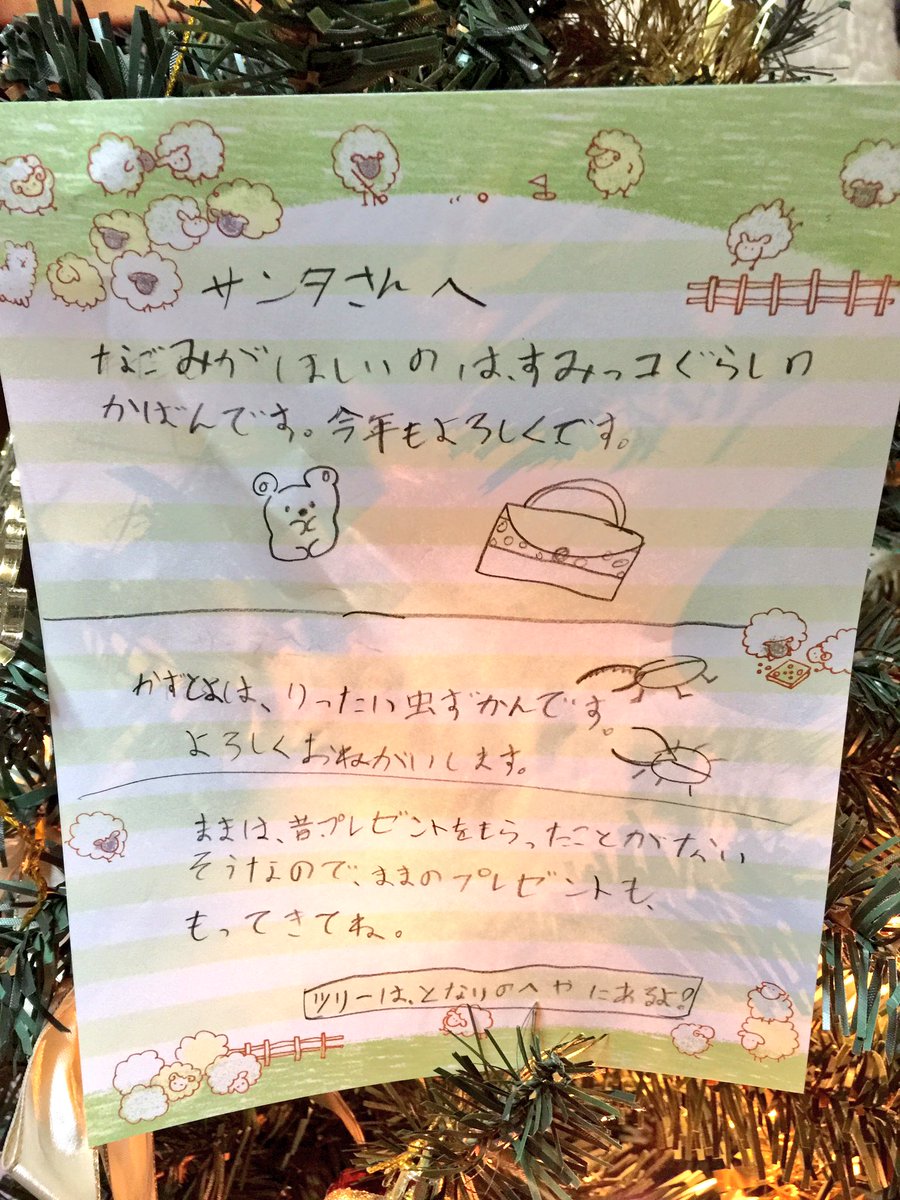 サンタさんへ
なごみがほしいのは、すみっコぐらしの
かばんです。今年もよろしくです。
かずとよは、りったい虫ずかんです。
よろしくおねがいします。
ままは、昔プレゼントをもらったことがない
そうなので、ままのプレゼントも、
もってきてね。
ツリーは、となりのへやにあるよ!